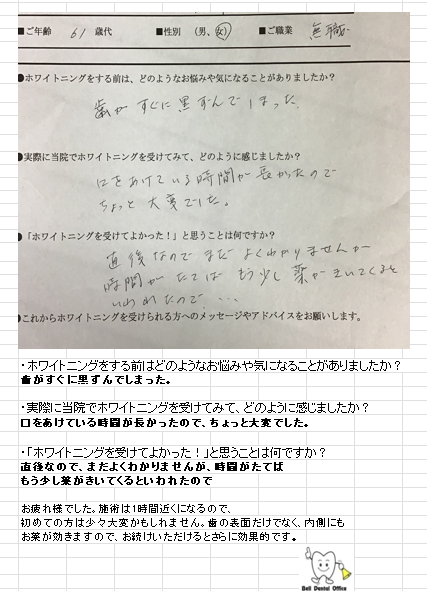 ■ご年齢 61 歳代 ■性別 (男、女) ■ご職業 無職
●ホワイトニングをする前は、どのようなお悩みや気になることがありましたか？
歯が すぐに黒ずんでしまった。
●実際に当院でホワイトニングを受けてみて、どのように感じましたか？
口をあけている時間が長かったので
ちょっと大変でした。
●「ホワイトニングを受けてよかった！」と思うことは何ですか？
直後なので まだ よくわかりませんが
時間がたてば もう少し 薬がきいてくると
いわれたので...
●これからホワイトニングを受けられる方へのメッセージやアドバイスをお願いします。
・ホワイトニングをする前はどのようなお悩みや気になることがありましたか？
歯がすぐに黒ずんでしまった。
・実際に当院でホワイトニングを受けてみて、どのように感じましたか？
口をあけている時間が長かったので、ちょっと大変でした。
・「ホワイトニングを受けてよかった！」と思うことは何ですか？
直後なので、まだよくわかりませんが、時間がたてば
もう少し薬がきいてくるといわれたので
お疲れ様でした。施術は1時間近くになるので、
初めての方は少々大変かもしれません。歯の表面だけでなく、内側にも
お薬が効きますので、お続けいただけるとさらに効果的です。
Bell Dental Office